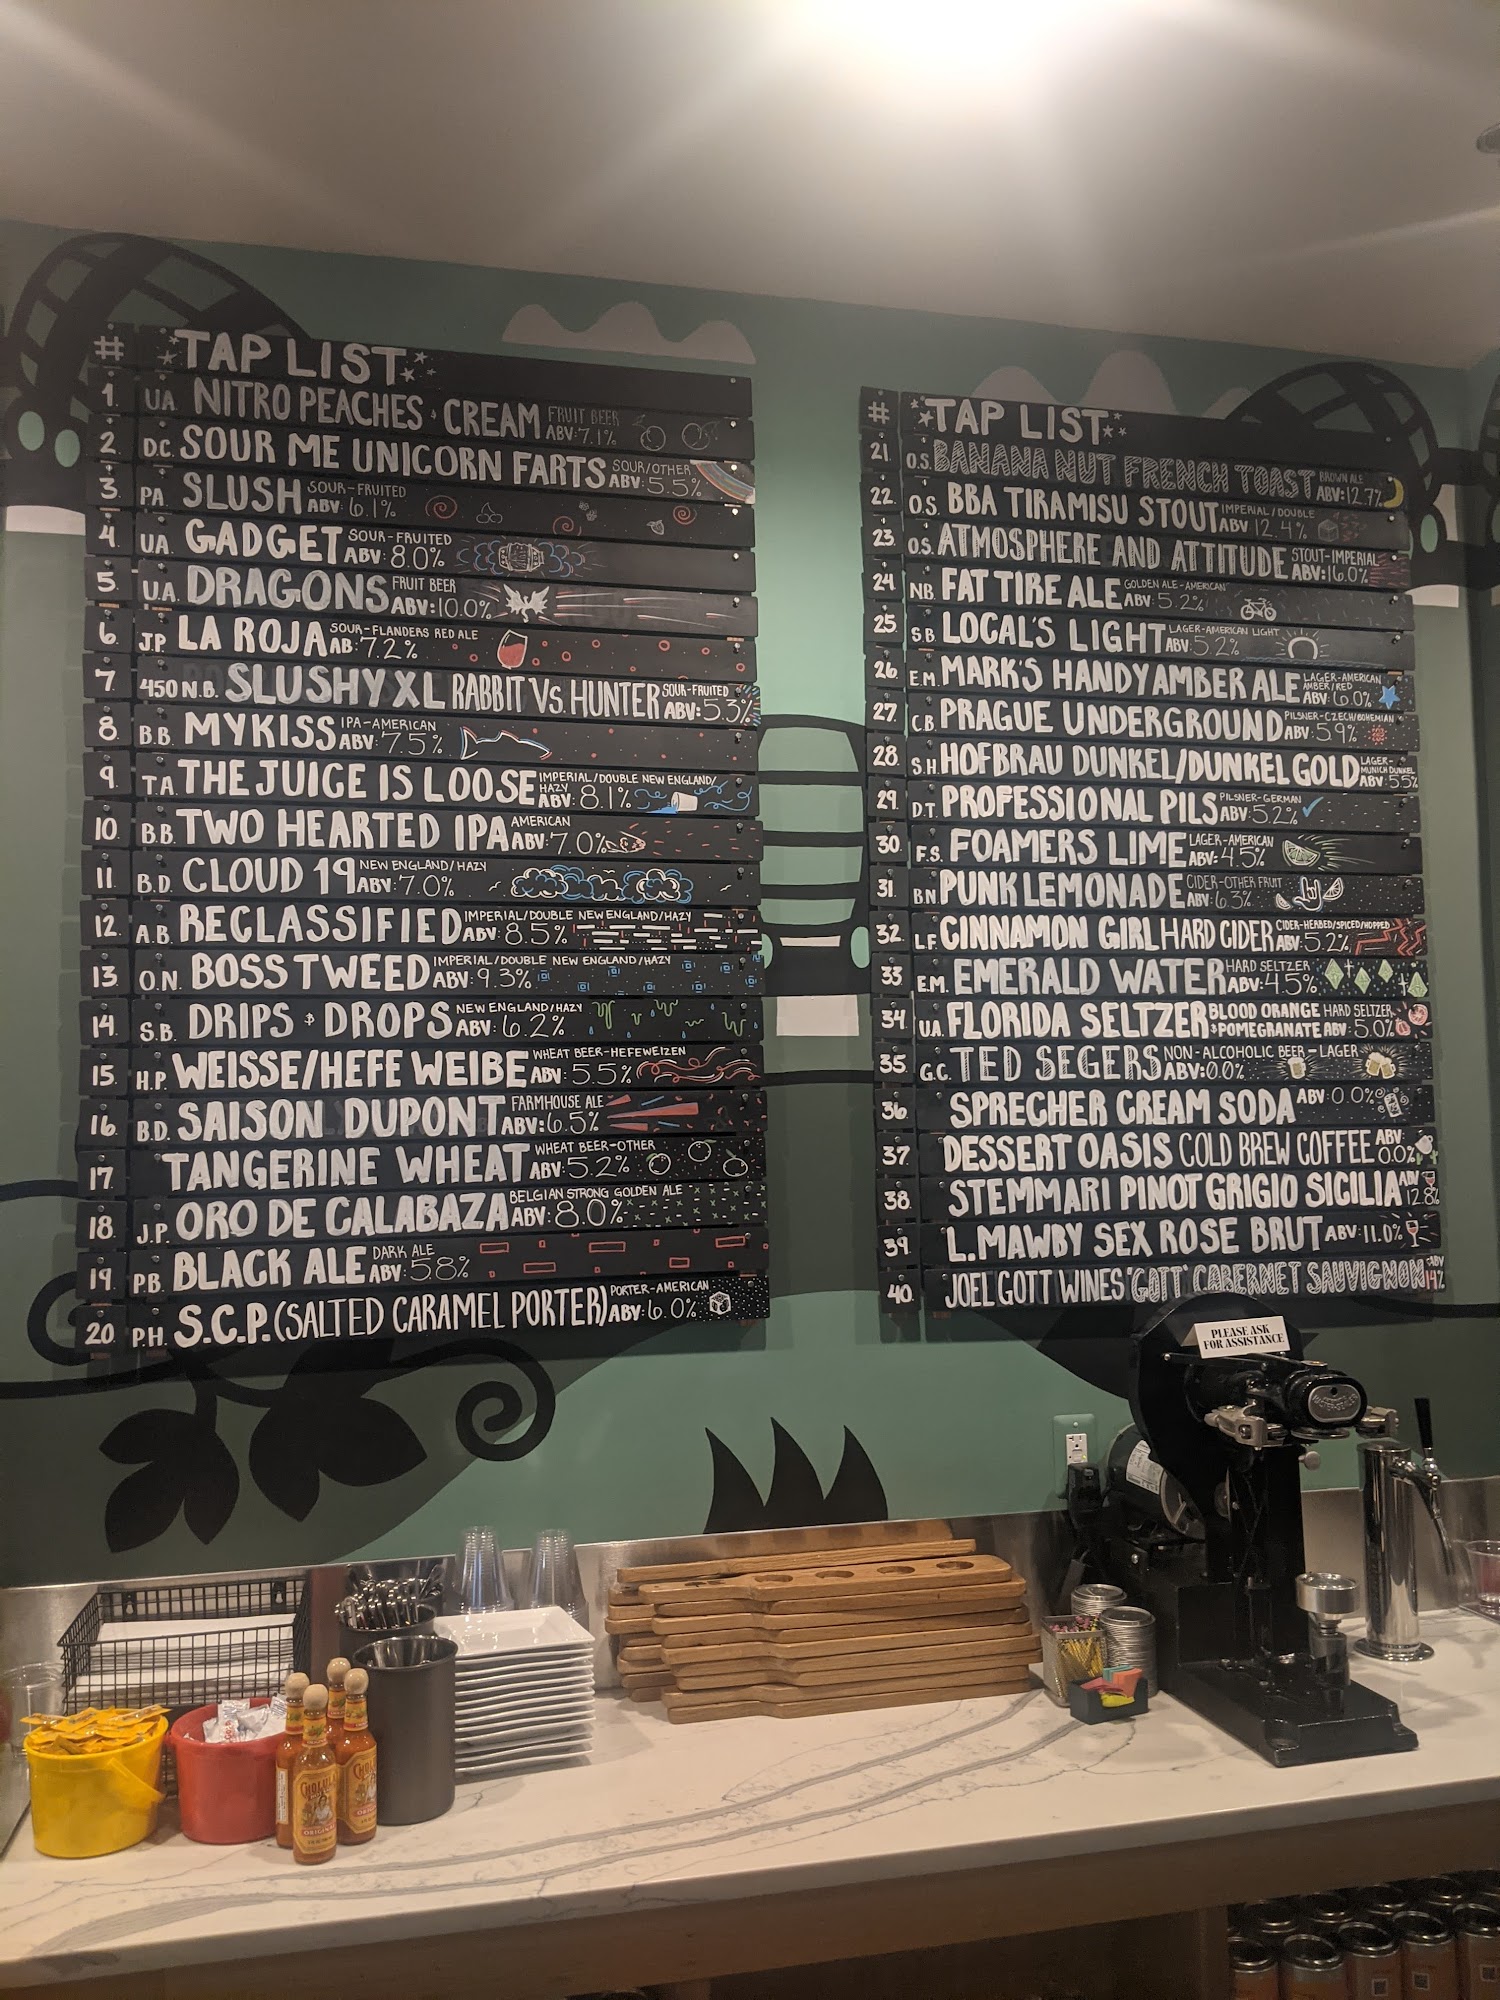 # TAP LIST
1. U.A. NITRO PEACHES & CREAM FRUIT BEER ABV: 7.1%
2. D.C. SOUR ME UNICORN FARTS SOUR/OTHER ABV: 5.5%
3. PA SLUSH SOUR-FRUITED ABV: 6.1%
4. U.A. GADGET SOUR-FRUITED ABV: 8.0%
5. U.A. DRAGONS FRUIT BEER ABV: 10.0%
6. J.P. LA ROJA SOUR-FLANDERS RED ALE AB: 7.2%
7. 450 N.B. SLUSHY XL RABBIT Vs. HUNTER SOUR-FRUITED ABV: 5.3%
8. B.B. MYKISS IPA-AMERICAN ABV: 7.5%
9. T.A. THE JUICE IS LOOSE IMPERIAL/DOUBLE NEW ENGLAND/HAZY ABV: 8.1%
10. B.B. TWO HEARTED IPA AMERICAN ABV: 7.0%
11. B.D. CLOUD 19 NEW ENGLAND/HAZY ABV: 7.0%
12. A.B. RECLASSIFIED IMPERIAL/DOUBLE NEW ENGLAND/HAZY ABV: 8.5%
13. O.N. BOSS TWEED IMPERIAL/DOUBLE NEW ENGLAND/HAZY ABV: 9.3%
14. S.B. DRIPS & DROPS NEW ENGLAND/HAZY ABV: 6.2%
15. H.P. WEISSE/HEFE WEIBE WHEAT BEER-HEFEWEIZEN ABV: 5.5%
16. B.D. SAISON DUPONT FARMHOUSE ALE ABV: 6.5%
17. TANGERINE WHEAT WHEAT BEER-OTHER ABV: 5.2%
18. J.P. ORO DE CALABAZA BELGIAN STRONG GOLDEN ALE ABV: 8.0%
19. P.B. BLACK ALE DARK ALE ABV: 5.8%
20. P.H. S.C.P. (SALTED CARAMEL PORTER) PORTER-AMERICAN ABV: 6.0%
# TAP LIST
21. O.S. BANANA NUT FRENCH TOAST BROWN ALE ABV: 12.7%
22. O.S. BBA TIRAMISU STOUT IMPERIAL/DOUBLE ABV 12.4%
23. O.S. ATMOSPHERE AND ATTITUDE STOUT-IMPERIAL ABV: 16.0%
24. N.B. FAT TIRE ALE GOLDEN ALE-AMERICAN ABV: 5.2%
25. S.B. LOCAL'S LIGHT LAGER-AMERICAN LIGHT ABV: 5.2%
26. E.M. MARK'S HANDY AMBER ALE LAGER-AMERICAN AMBER/RED ABV: 6.0%
27. C.B. PRAGUE UNDERGROUND PILSNER-CZECH/BOHEMIAN ABV: 5.9%
28. S.H. HOFBRAU DUNKEL/DUNKEL GOLD LAGER-MUNICH DUNKEL ABV: 5.5%
29. D.T. PROFESSIONAL PILS PILSNER-GERMAN ABV: 5.2%
30. F.S. FOAMERS LIME LAGER-AMERICAN ABV: 4.5%
31. B.N. PUNK LEMONADE CIDER-OTHER FRUIT ABV: 6.3%
32. L.F. CINNAMON GIRL HARD CIDER CIDER-HERBED/SPICED/HOPPED ABV: 5.2%
33. E.M. EMERALD WATER HARD SELTZER ABV: 4.5%
34. U.A. FLORIDA SELTZER BLOOD ORANGE & POMEGRANATE HARD SELTZER ABV: 5.0%
35. G.C. TED SEGERS NON-ALCOHOLIC BEER-LAGER ABV: 0.0%
36. SPRECHER CREAM SODA ABV: 0.0%
37. DESSERT OASIS COLD BREW COFFEE ABV: 0.0%
38. STEMMARI PINOT GRIGIO SICILIA ABV 12.8%
39. L.MAWBY SEX ROSE BRUT ABV: 11.0%
40. JOEL GOTT WINES 'GOTT' CABERNET SAUVIGNON ABV 14%
PLEASE ASK
FOR ASSISTANCE
CHOLULA
ORIGINAL